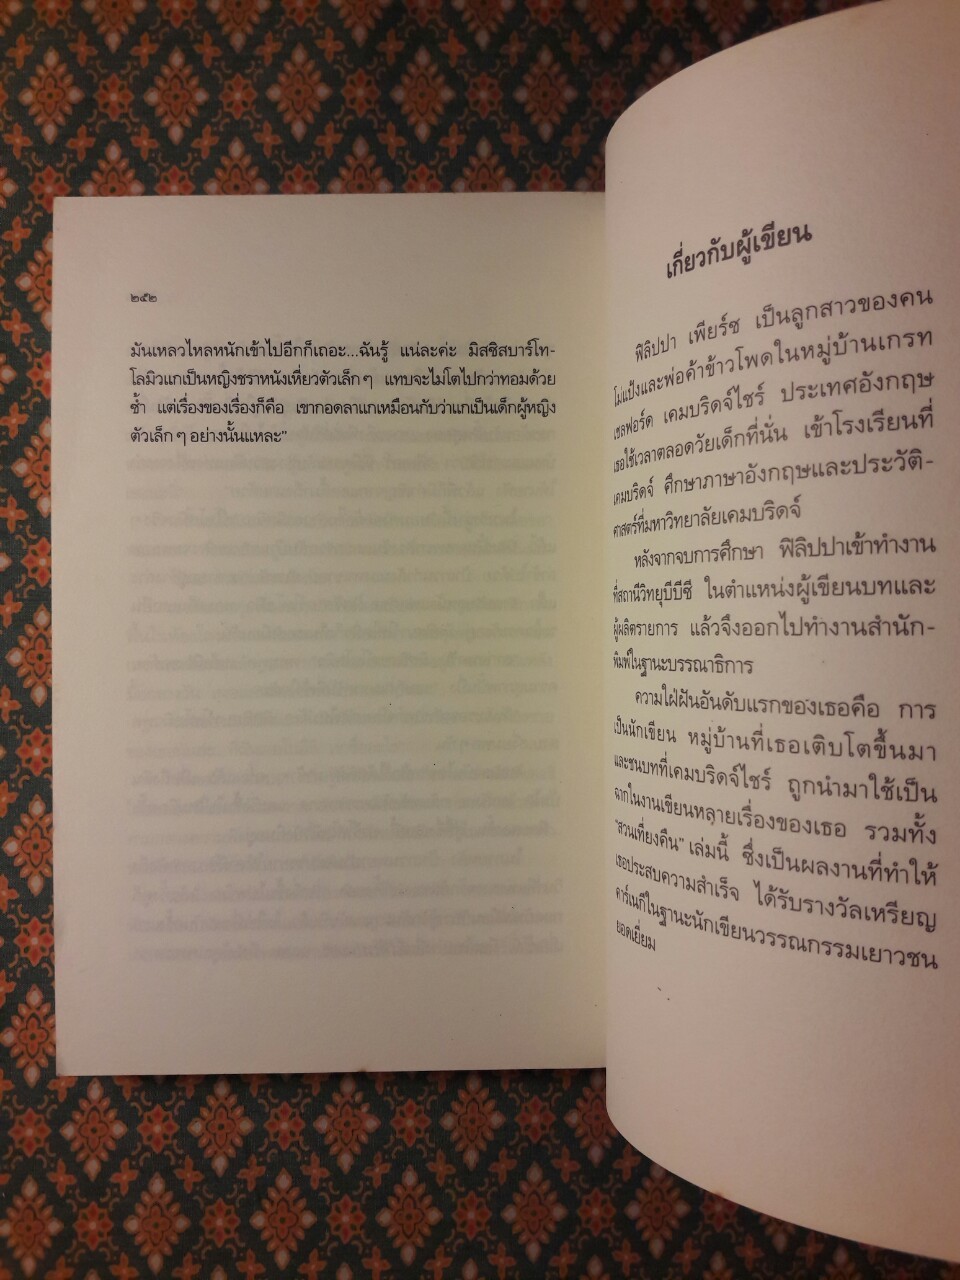 ๒๕๒
มันเหลวไหลหนักเข้าไปอีกก็เถอะ...ฉันรู้ แน่ละค่ะ มิสซิสบาร์โท-
โลมิวแกเป็นหญิงชราหนังเหี่ยวตัวเล็ก ๆ แทบจะไม่โตไปกว่าทอมด้วย
ซ้ำ แต่เรื่องของเรื่องก็คือ เขากอดลาแกเหมือนกับว่าแกเป็นเด็กผู้หญิง
ตัวเล็ก ๆ อย่างนั้นแหละ"
เกี่ยวกับผู้เขียน
ฟิลิปปา เพียร์ซ เป็นลูกสาวของคน
โม่แป้งและพ่อค้าข้าวโพดในหมู่บ้านเกรท
เชลฟอร์ด เคมบริดจ์ไชร์ ประเทศอังกฤษ
เธอใช้เวลาตลอดวัยเด็กที่นั่น เข้าโรงเรียนที่
เคมบริดจ์ ศึกษาภาษาอังกฤษและประวัติ-
ศาสตร์ที่มหาวิทยาลัยเคมบริดจ์
หลังจากจบการศึกษา ฟิลิปปาเข้าทำงาน
ที่สถานีวิทยุบีบีซี ในตำแหน่งผู้เขียนบทและ
ผู้ผลิตรายการ แล้วจึงออกไปทำงานสำนัก-
พิมพ์ในฐานะบรรณาธิการ
ความใฝ่ฝันอันดับแรกของเธอคือ การ
เป็นนักเขียน หมู่บ้านที่เธอเติบโตขึ้นมา
และชนบทที่เคมบริดจ์ไชร์ ถูกนำมาใช้เป็น
ฉากในงานเขียนหลายเรื่องของเธอ รวมทั้ง
"สวนเที่ยงคืน" เล่มนี้ ซึ่งเป็นผลงานที่ทำให้
เธอประสบความสำเร็จ ได้รับรางวัลเหรียญ
คาร์เนกีในฐานะนักเขียนวรรณกรรมเยาวชน
ยอดเยี่ยม